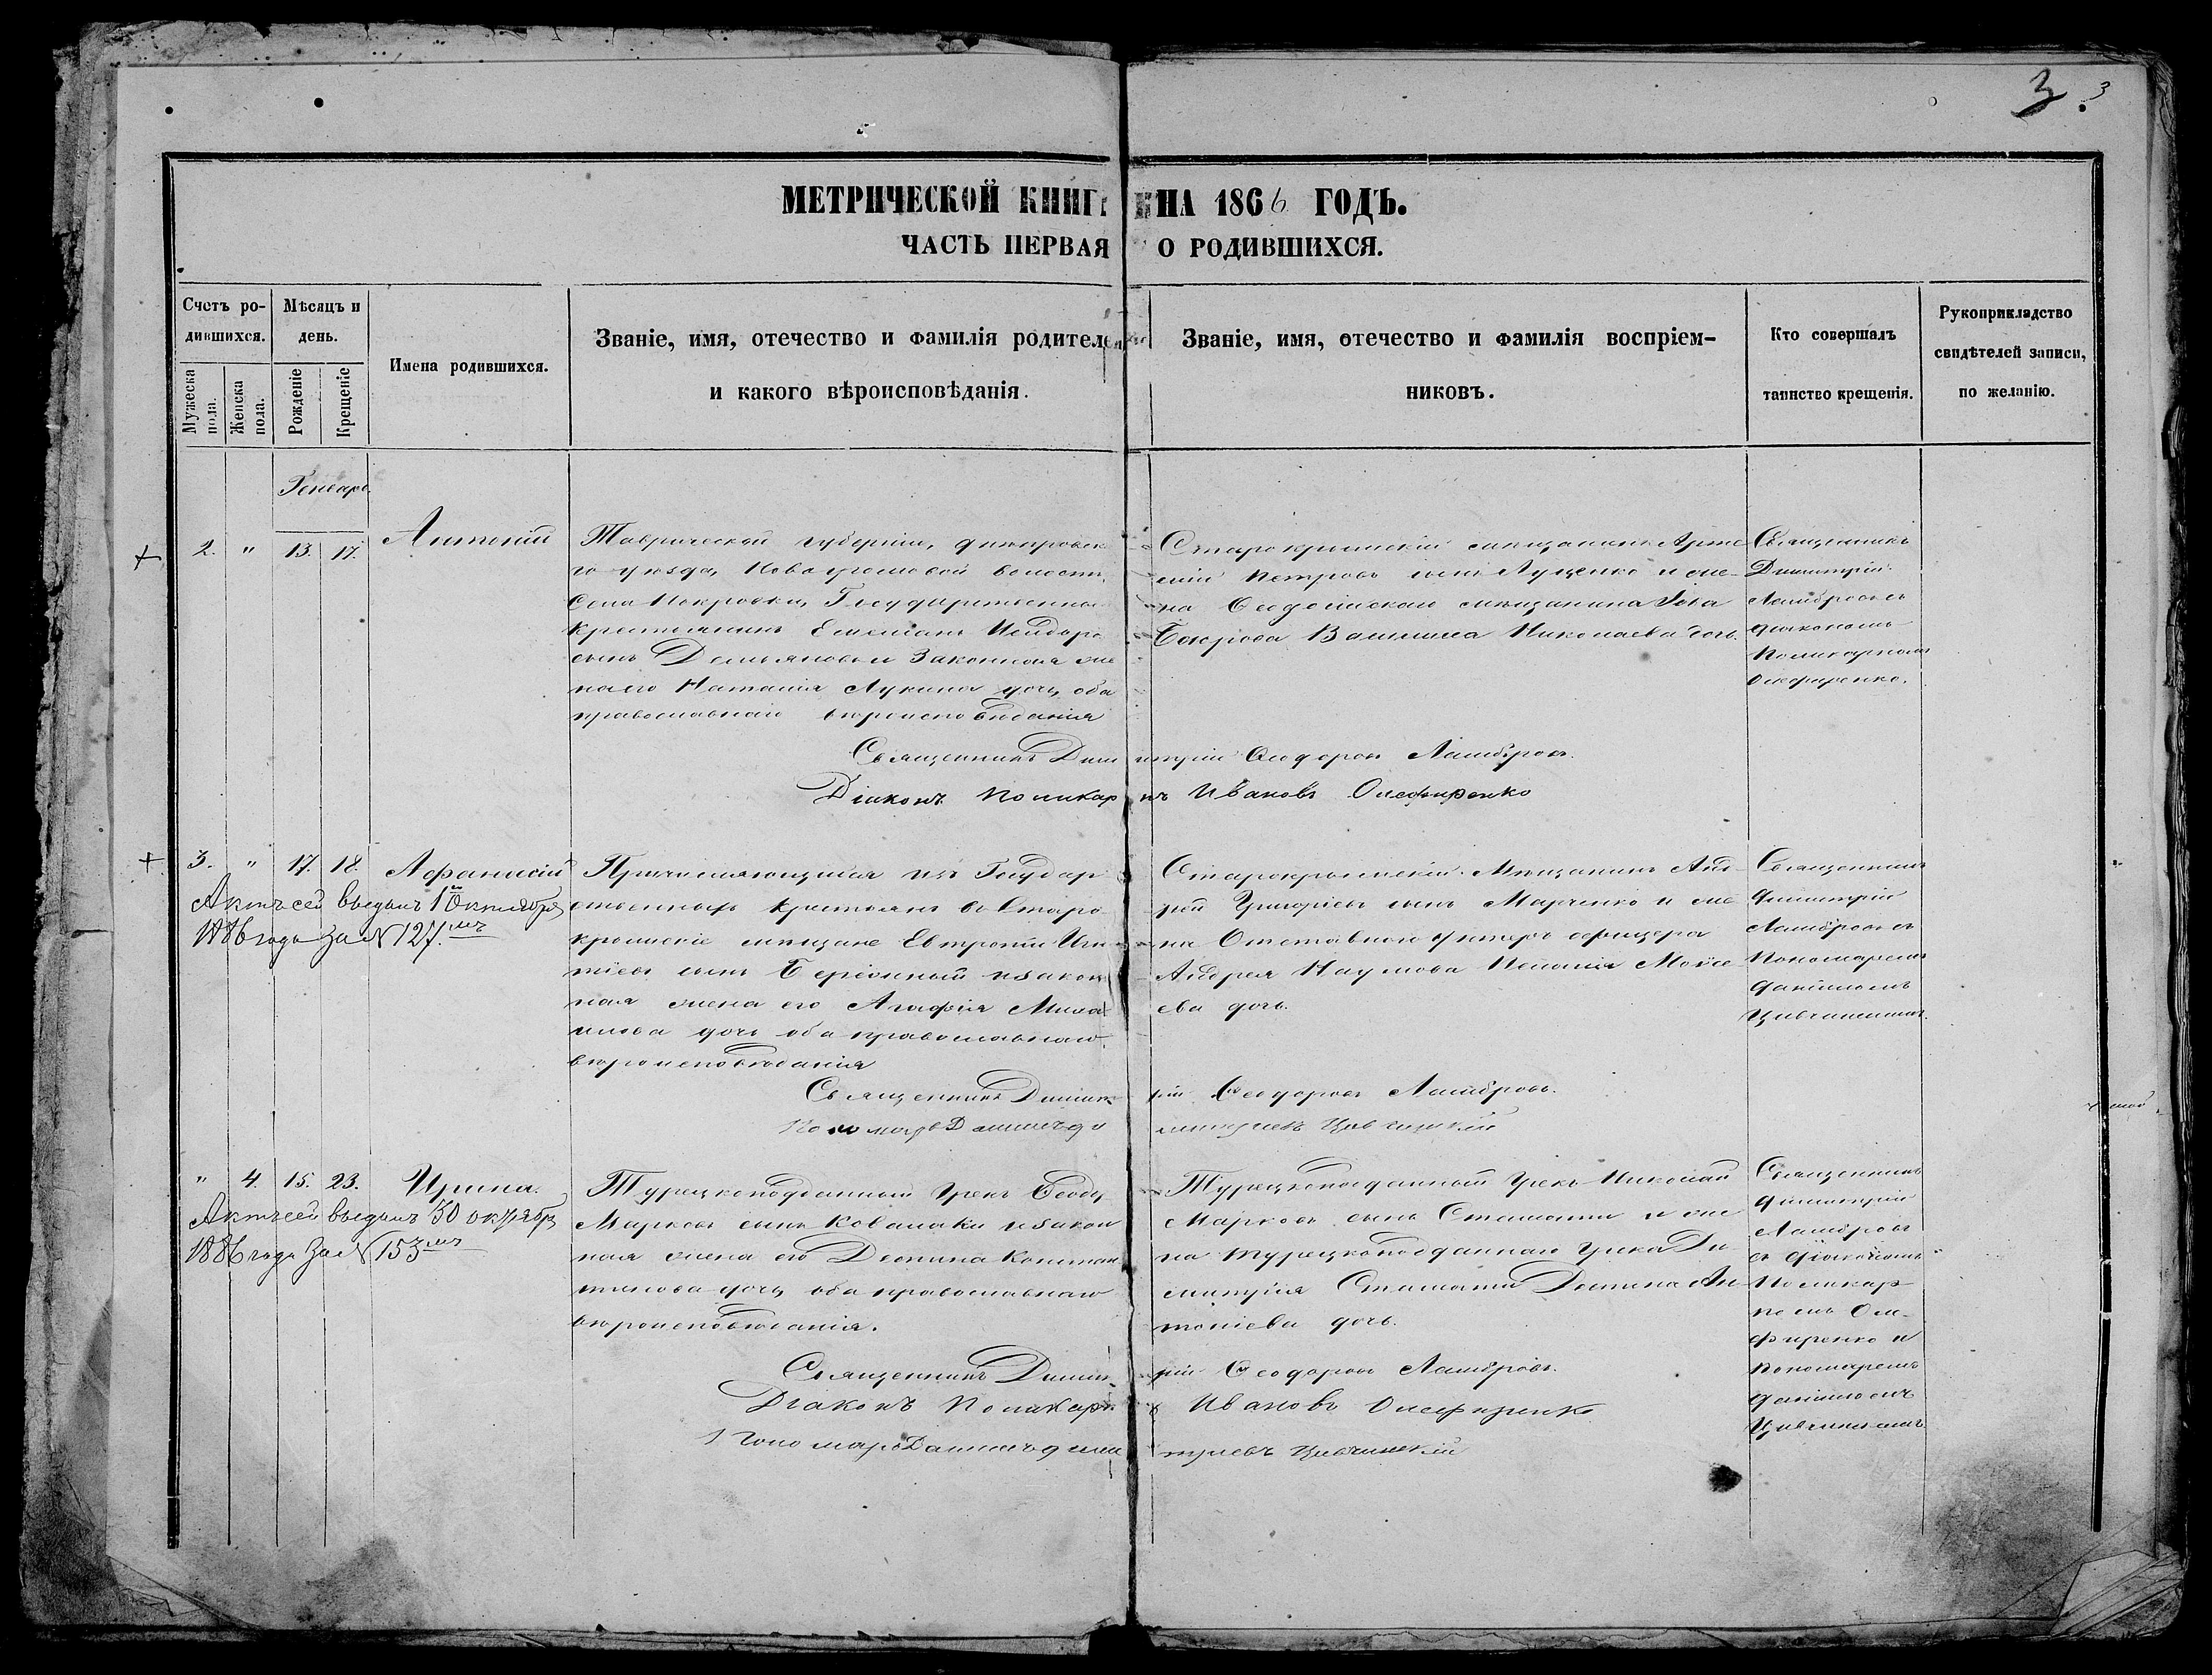 3. 3
МЕТРИЧЕСКОЙ КНИГИ НА 1866 ГОДЪ.
ЧАСТЬ ПЕРВАЯ О РОДИВШИХСЯ.
Счетъ родившихся.
Мужеска пола.
Женска пола.
Мѣсяцъ и день.
Рожденіе
Крещеніе
Имена родившихся.
Званіе, имя, отечество и фамилія родителей
и какого вѣроисповѣданія.
Званіе, имя, отечество и фамилія воспріем-
никовъ.
Кто совершалъ
таинство крещенія.
Рукоприкладство
свидѣтелей записи,
по желанію.
Генварь
2. " 13. 17. Антоній
Таврической губерніи, днѣпровска
го уѣзда, волости,
Села Покровки, Государственный
крестьянинъ Емеліанъ
сынъ Демьяновъ и Законная же
на его Наталія Лукина дочь, оба
православнаго вѣроисповѣданія
Старокрымскій мѣщанинъ Арте
мій Петровъ сынъ Луценко и же-
на Ѳеодосійскаго мѣщанина
Николаева дочь
Священникъ
Димитрій
Ламбровъ съ
діакономъ
Поликарпомъ
Олефиренко.
Священникъ Димитрій Ѳеодоровъ Ламбровъ.
Діаконъ Поликарпъ Ивановъ Олефиренко
3. " 17. 18. Афанасій
Актъ сей выданъ 1й Октября
1886 года за N 127.мъ
Причисляющійся изъ Государ
ственныхъ крестьянъ въ Старо
крымскіе мѣщане Евтропій
сынъ и закон
ная жена его Агафія Михаи
лова дочь оба православнаго
вѣроисповѣданія
Старокрымскій Мѣщанинъ Анд-
рей Григорьевъ сынъ Марченко и же
на Отставнаго Унтеръ офицера
Андрея Наумова Моисе
ева дочь.
Священникъ
Димитрій
Ламбровъ съ
Пономаремъ
Даніиломъ
Священникъ Димитрій Ѳеодоровъ Ламбровъ.
Пономарь Даніилъ Димитріевъ
" 4. 15. 23. Ирина.
Актъ сей выданъ 30 октября
1886 года за N 153мъ
Турецкоподданный Грекъ Ѳеодоръ
Марковъ сынъ и закон
ная жена его Деспина Констан
тинова дочь, оба православнаго
вѣроисповѣданія.
Турецкоподданный Грекъ Николай
Марковъ сынъ Стамати и же
на турецкоподданнаго Грека Ди
митрія Стамати Ан
тоніева дочь.
Священникъ
Димитрій
Ламбровъ
съ Діакономъ
Поликар
помъ Оле-
фиренко и
Пономаремъ
Даніиломъ
Священникъ Димитрій Ѳеодоровъ Ламбровъ.
Діаконъ Поликарпъ Ивановъ Олефиренко
Пономарь Даніилъ Димитріевъ